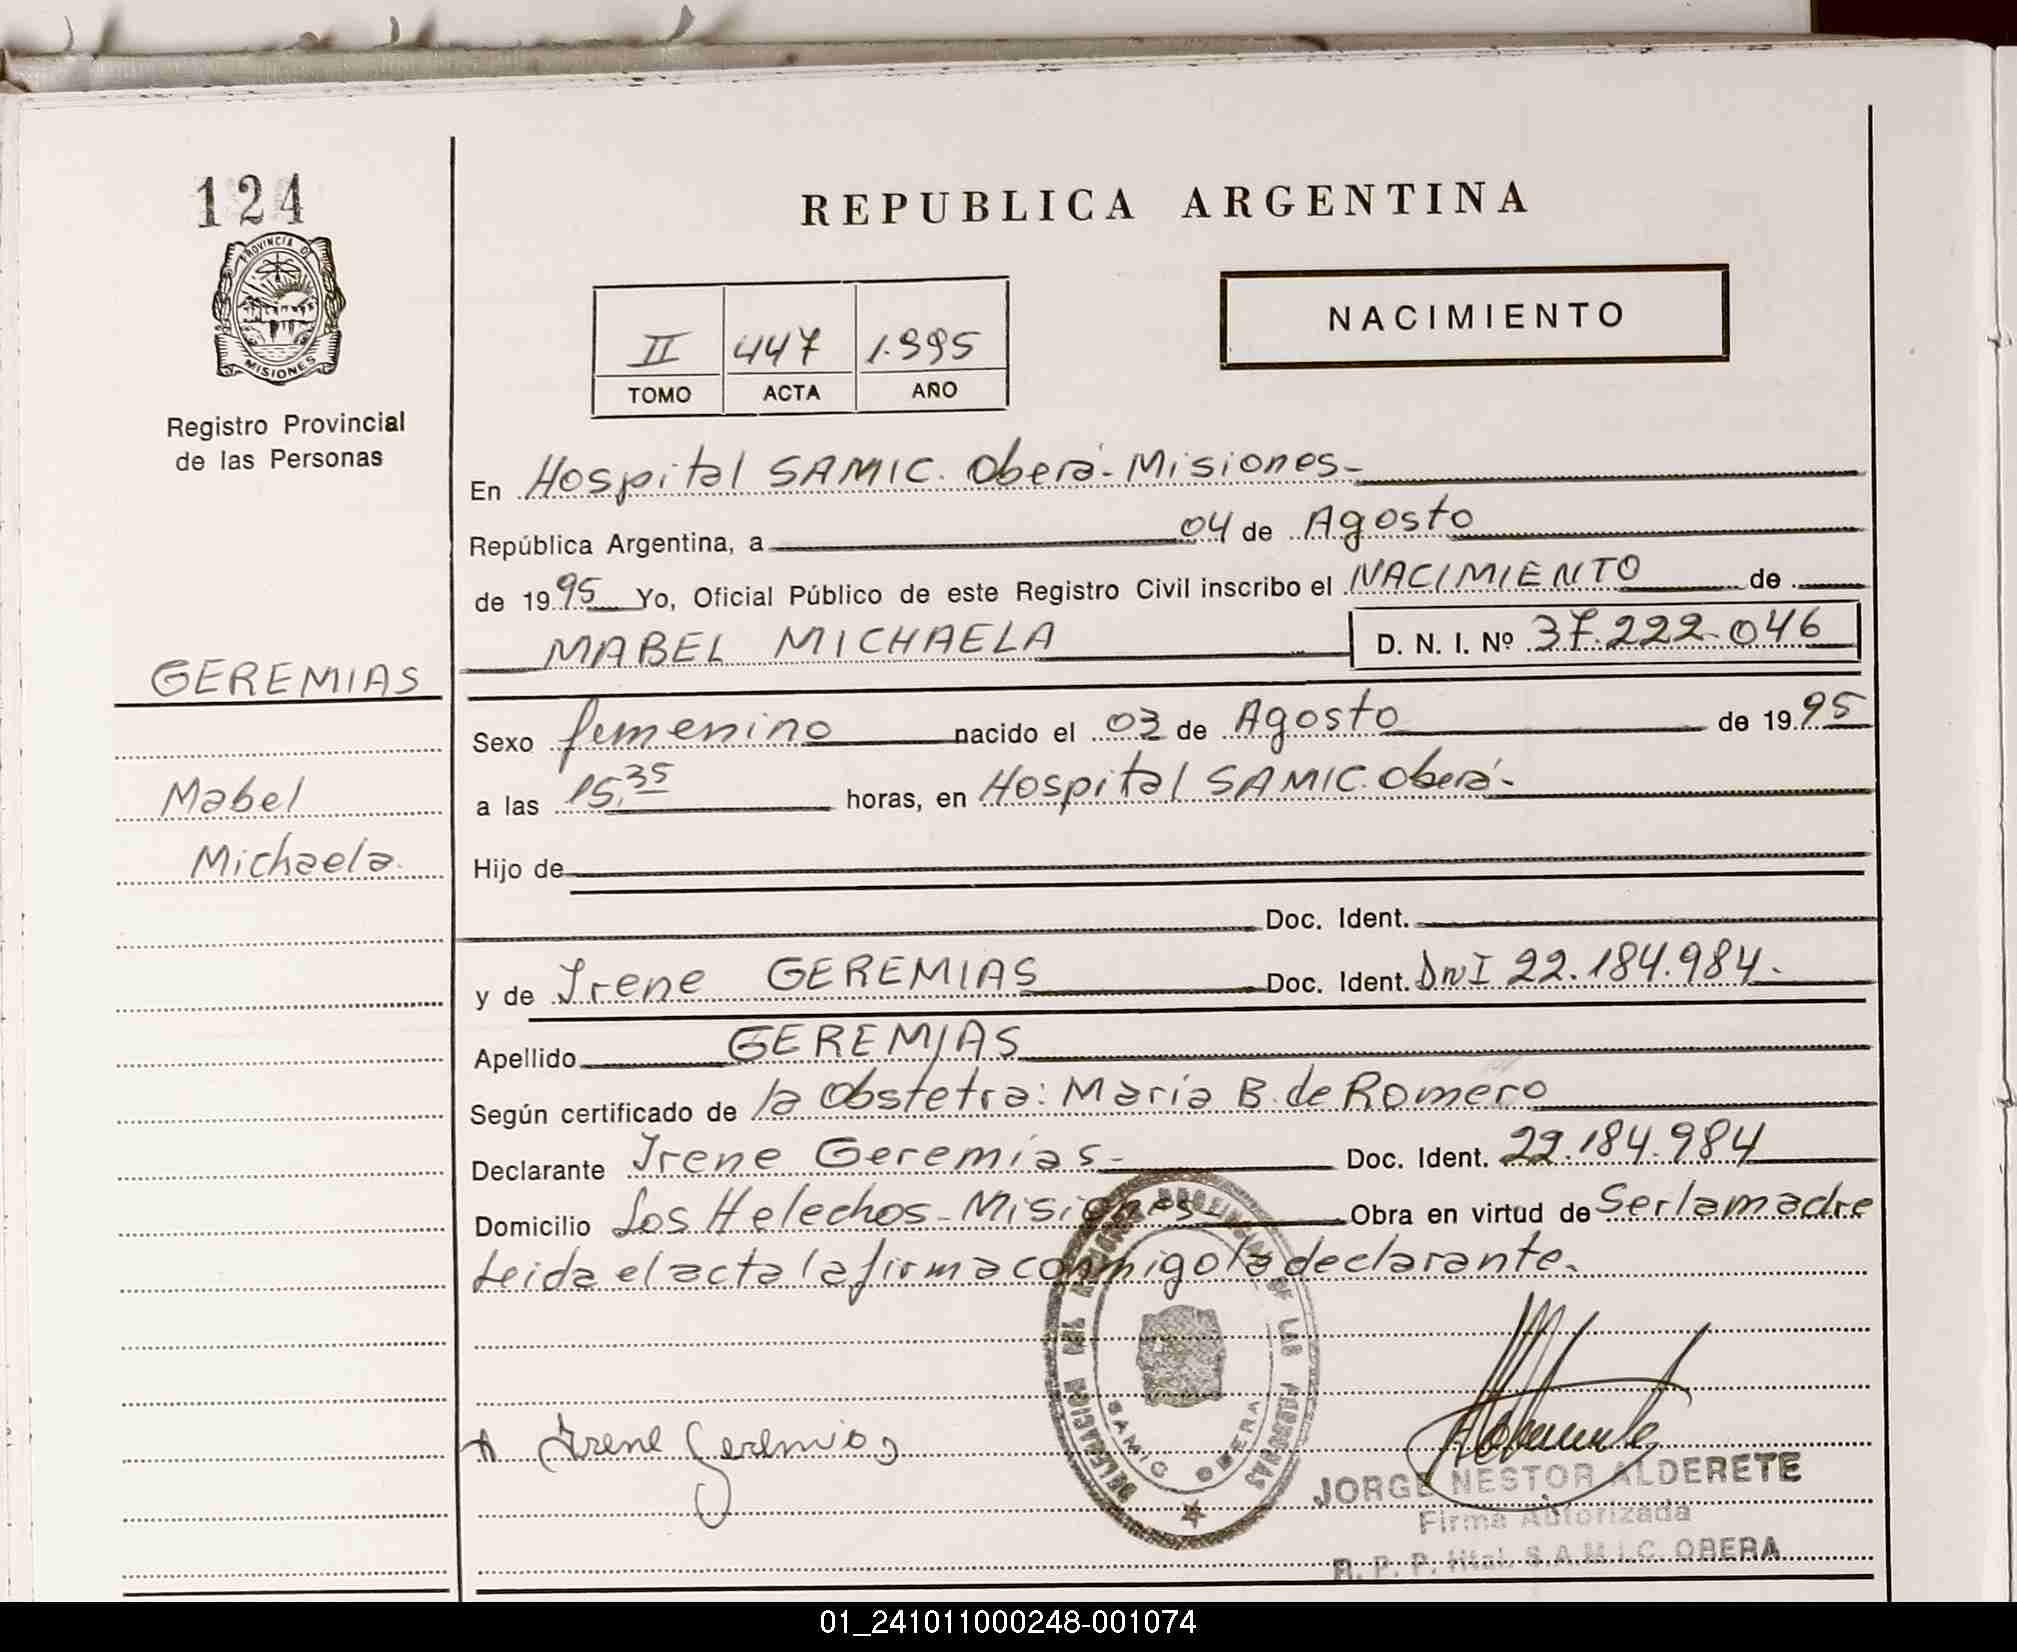 124
PROVINCIA DE
MISIONES
Registro Provincial
de las Personas
GEREMIAS
Mabel
Michaela.
REPUBLICA ARGENTINA
NACIMIENTO
II 447 1.995
TOMO ACTA AÑO
En Hospital SAMIC. Oberá - Misiones-
República Argentina, a 04 de Agosto
de 1995 Yo, Oficial Público de este Registro Civil inscribo el NACIMIENTO de
MABEL MICHAELA D. N. I. Nº 37.222.046
Sexo femenino nacido el 03 de Agosto de 1995
a las 15,35 horas, en Hospital SAMIC. Oberá-
Hijo de
Doc. Ident.
y de Irene GEREMIAS Doc. Ident. DNI 22.184.984.
Apellido GEREMIAS
Según certificado de la Obstetra: María B. de Romero
Declarante Irene Geremías- Doc. Ident. 22.184.984
Domicilio Los Helechos - Misiones - Obra en virtud de Ser la madre
Leida el acta la firma conmigo la declarante.
DELEGACION DE LAS
SAMIC OBERA
Irene Geremias
JORGE NESTOR ALDERETE
Firma Autorizada
R. P. P. Htal. S.A.M.I.C. OBERA
01_241011000248-001074